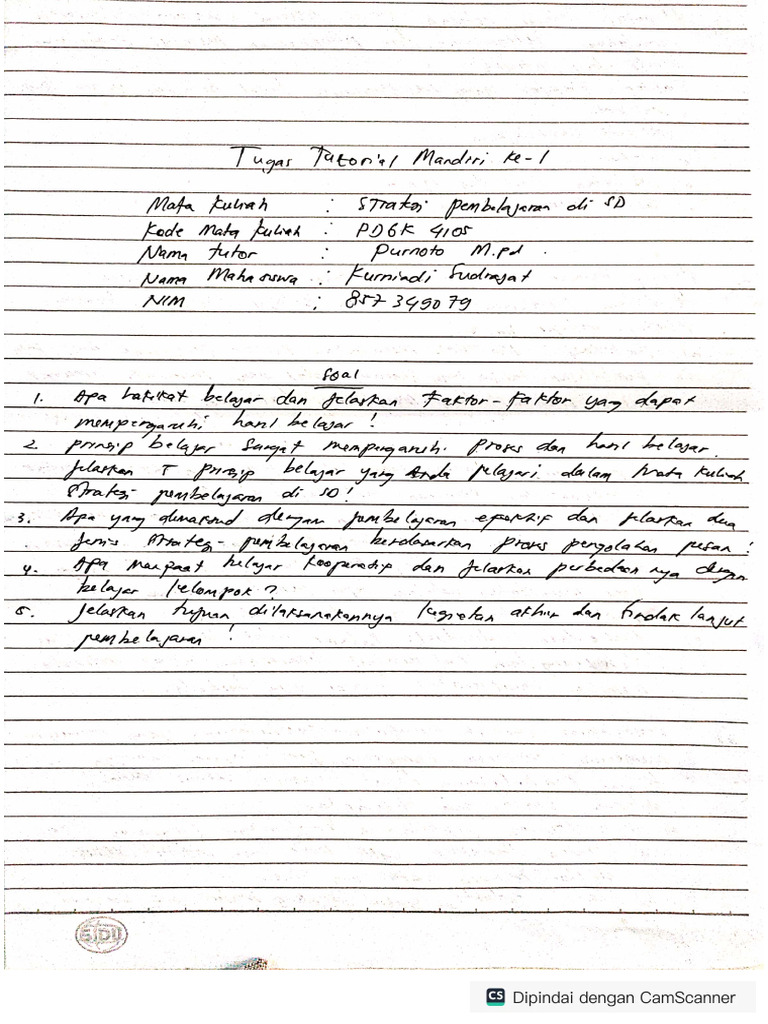 Tugas Tutorial Mandiri ke-1
Mata Kuliah : Strategi pembelajaran di SD
Kode Mata Kuliah : PDGK 4105
Nama tutor : Purnoto M.pd .
Nama Mahasiswa : Kurniadi Sudrajat
NIM : 857349079
Soal
1. Apa hakikat belajar dan jelaskan Faktor-faktor yang dapat
mempengaruhi hasil belajar !
2. prinsip belajar sangat mempengaruhi proses dan hasil belajar.
jelaskan 7 prinsip belajar yang Anda pelajari dalam mata kuliah
Strategi pembelajaran di SD!
3. Apa yang dimaksud dengan pembelajaran efektif dan jelaskan dua
jenis strategi pembelajaran berdasarkan proses pengolahan pesan !
4. Apa manpaat belajar kooperatip dan jelaskan perbedaannya dengan
belajar kelompok ?
5. jelaskan tujuan dilaksanakannya kegiatan akhir dan tindak lanjut
pembelajaran !
SIDU
CS Dipindai dengan CamScanner